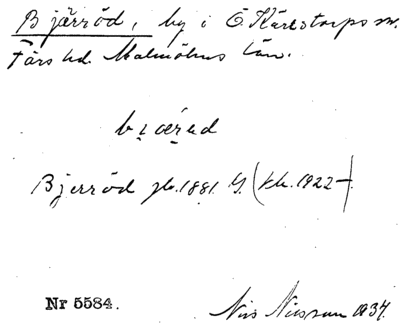 Bjärröd, by i Ö. Kärrstorps sn.
Färs hd. Malmöhus län.
bi̯æ̣rəd
Bjerröd jb. 1881. G. (kh. 1922–)
Nr 5584.
Nils Nilsson 1934.